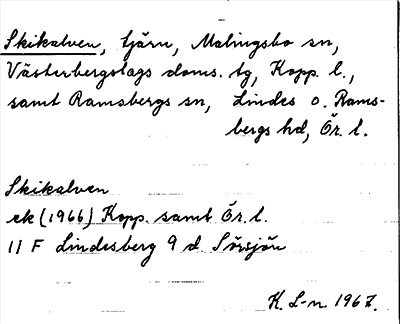 Skikalven, tjärn, Malingsbo sn,
Västerbergslags doms. tg, Kopp. l.,
samt Ramsbergs sn, Lindes o. Rams-
bergs hd, Ör. l.
Skikalven
ek (1966) Kopp. samt Ör. l.
11 F Lindesberg 9 d Sörsjön
K. L-n. 1967.